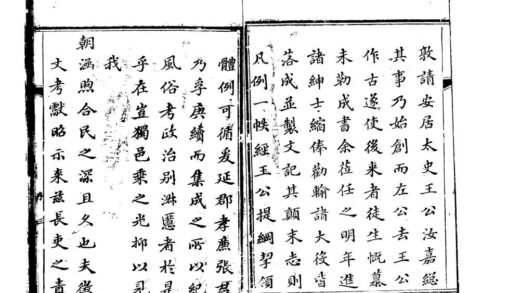 敦請安居太史王公汝嘉總
其事乃始創而左公去王公
作古遂使後来者徒生慨慕
未勒成書余莅任之明年進
諸紳士縮俸勸輸諸大役皆
落成並製文記其顛末志則
凡例一帙經王公提綱挈領
體例可循爰延郡孝廉張君
乃孚庚續而集成之所以紀
風俗考政治别淑慝者於是
乎在豈獨邑乘之光抑以見
我
朝涵煦合民之深且久也夫徵
文考獻昭示来兹長吏之責